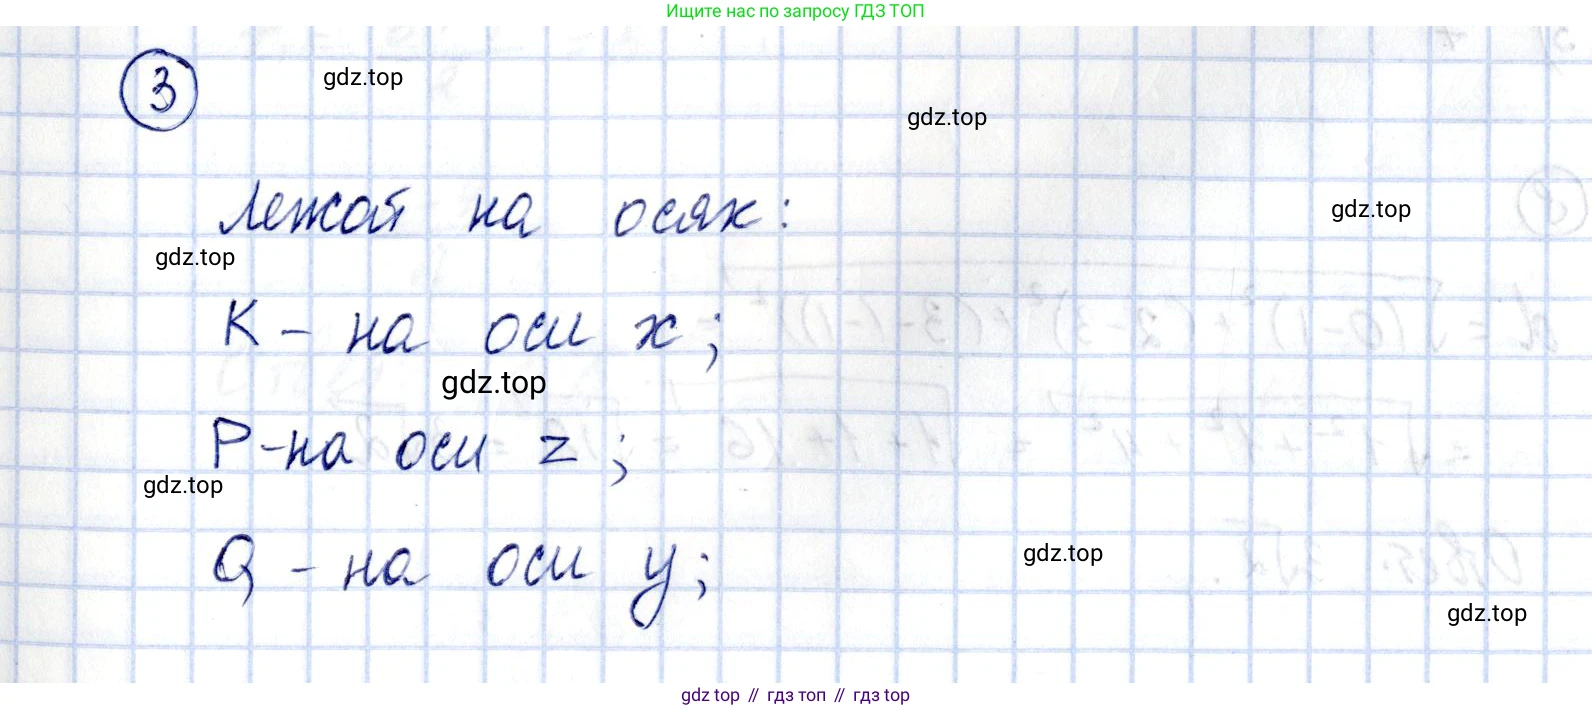 Ищите нас по запросу ГДЗ ТОП
3
gdz.top
gdz.top
Лежат на осях:
gdz.top
gdz.top
К - на оси x;
gdz.top
P - на оси z;
gdz.top
Q - на оси y;
gdz.top
gdz.top
gdz.top // гдз топ // гдз top